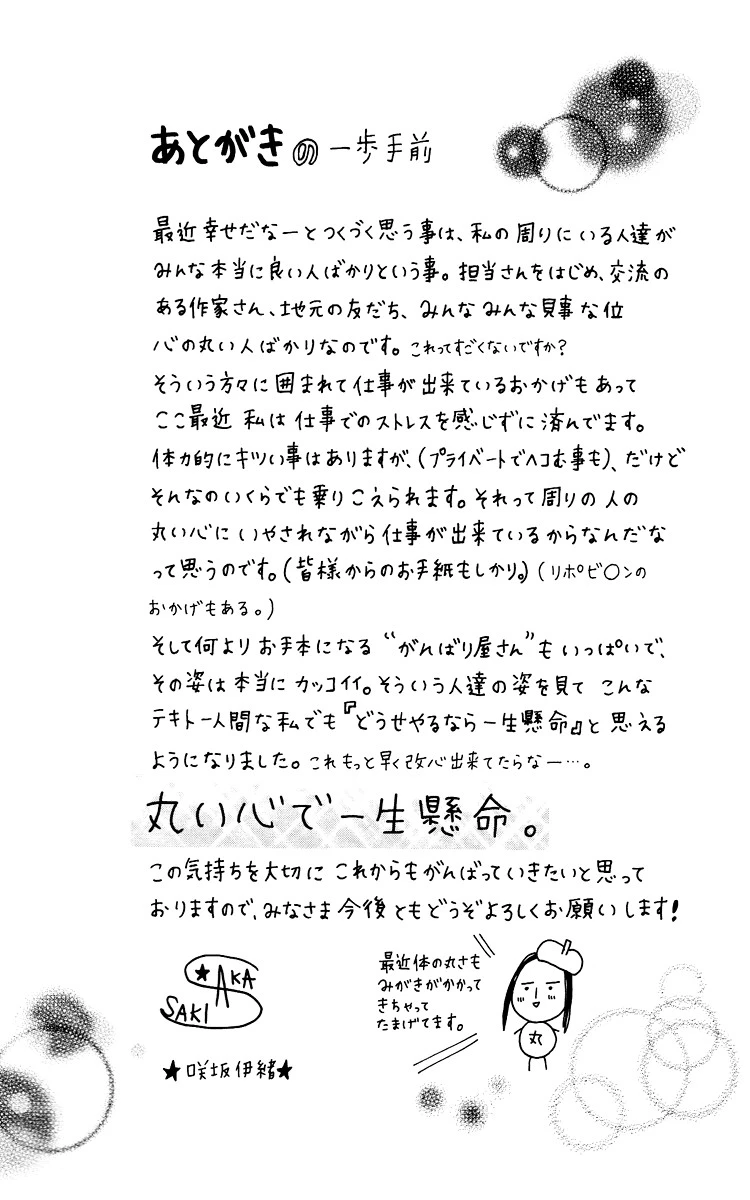 あとがきの一歩手前
最近幸せだなーとつくづく思う事は、私の周りにいる人達が
みんな本当に良い人ばかりという事。担当さんをはじめ、交流の
ある作家さん、地元の友だち、みんなみんな見事な位
心の丸い人ばかりなのです。これってすごくないですか?
そういう方々に囲まれて仕事が出来ているおかげもあって
ここ最近私は仕事でのストレスを感じずに済んでます。
体力的にキツい事はありますが、(プライベートでヘコむ事も)、だけど
そんなのいくらでも乗りこえられます。それって周りの人の
丸い心にいやされながら仕事が出来ているからなんだな
って思うのです。(皆様からのお手紙もしかり。)(リポビ〇ンの
おかげもある。)
そして何よりお手本になる“がんばり屋さん”もいっぱいで、
その姿は本当にカッコイイ。そういう人達の姿を見てこんな
テキトー人間な私でも『どうせやるなら一生懸命』と思える
ようになりました。これもっと早く改心出来てたらなー…。
丸い心で一生懸命。
この気持ちを大切にこれからもがんばっていきたいと思って
おりますので、みなさま今後ともどうぞよろしくお願いします!
★SAKA
SAKI
★咲坂伊緒★
最近体の丸さも
みがきがかかって
きちゃって
たまげてます。
丸